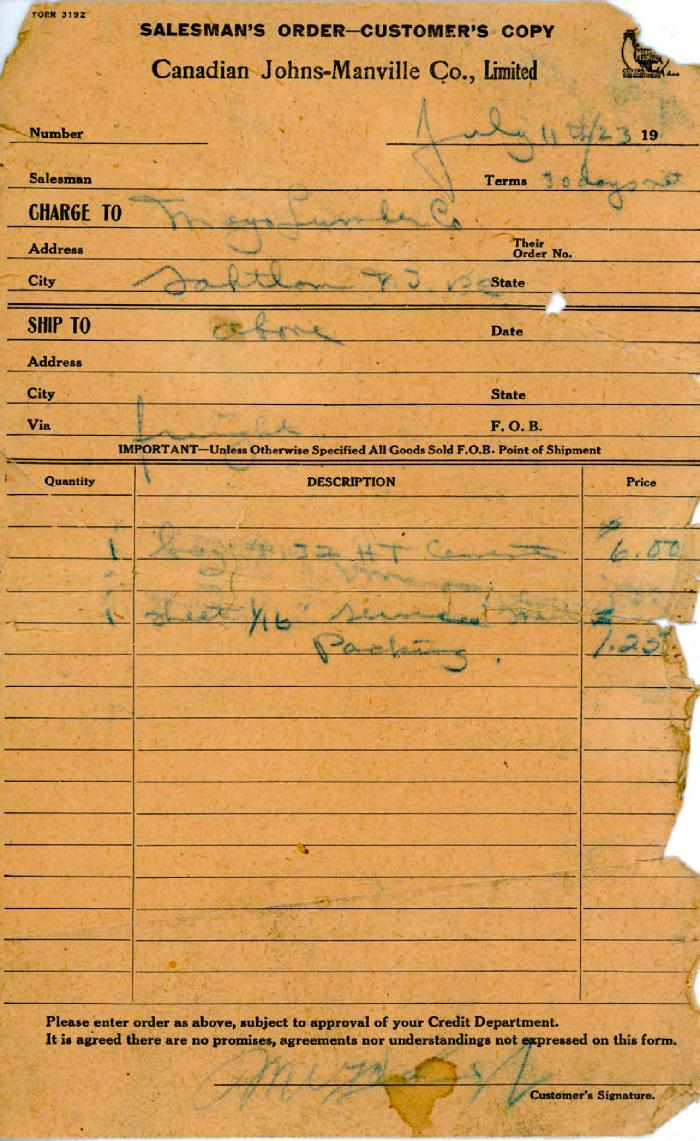 FORM 3192
SALESMAN'S ORDER—CUSTOMER'S COPY
Canadian Johns-Manville Co., Limited
Number July 11th/23 19
Salesman Terms 30 days net
CHARGE TO Mayo Lumber Co
Address Their Order No.
City Sahtlam V.I. BC State
SHIP TO above Date
Address
City State
Via freight F. O. B.
IMPORTANT—Unless Otherwise Specified All Goods Sold F.O.B. Point of Shipment
Quantity DESCRIPTION Price
1 bag # 32 HT Cement $ 6.00
1 Sheet 1/16" Service
Packing. 7.25
Please enter order as above, subject to approval of your Credit Department.
It is agreed there are no promises, agreements nor understandings not expressed on this form.
Customer's Signature.